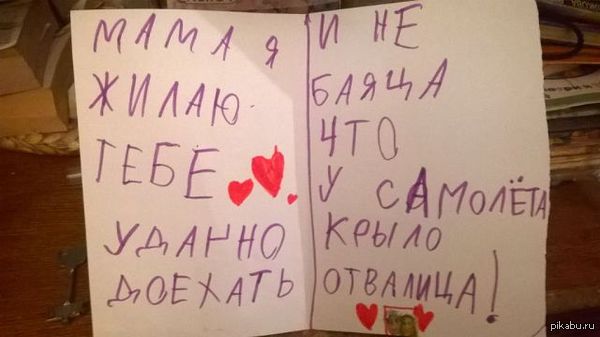 МАМА Я
ЖИЛАЮ
ТЕБЕ
УДАЧНО
ДОЕХАТЬ
И НЕ
БАЯЦА
ЧТО
У САМОЛЁТА
КРЫЛО
ОТВАЛИЦА!
pikabu.ru